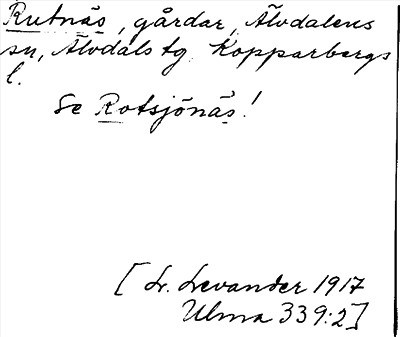 Rutnäs, gårdar, Älvdalens
sn, Älvdals tg Kopparbergs
l.
Se Rotsjönäs!
[L. Levander 1917
Ulma 339:2]